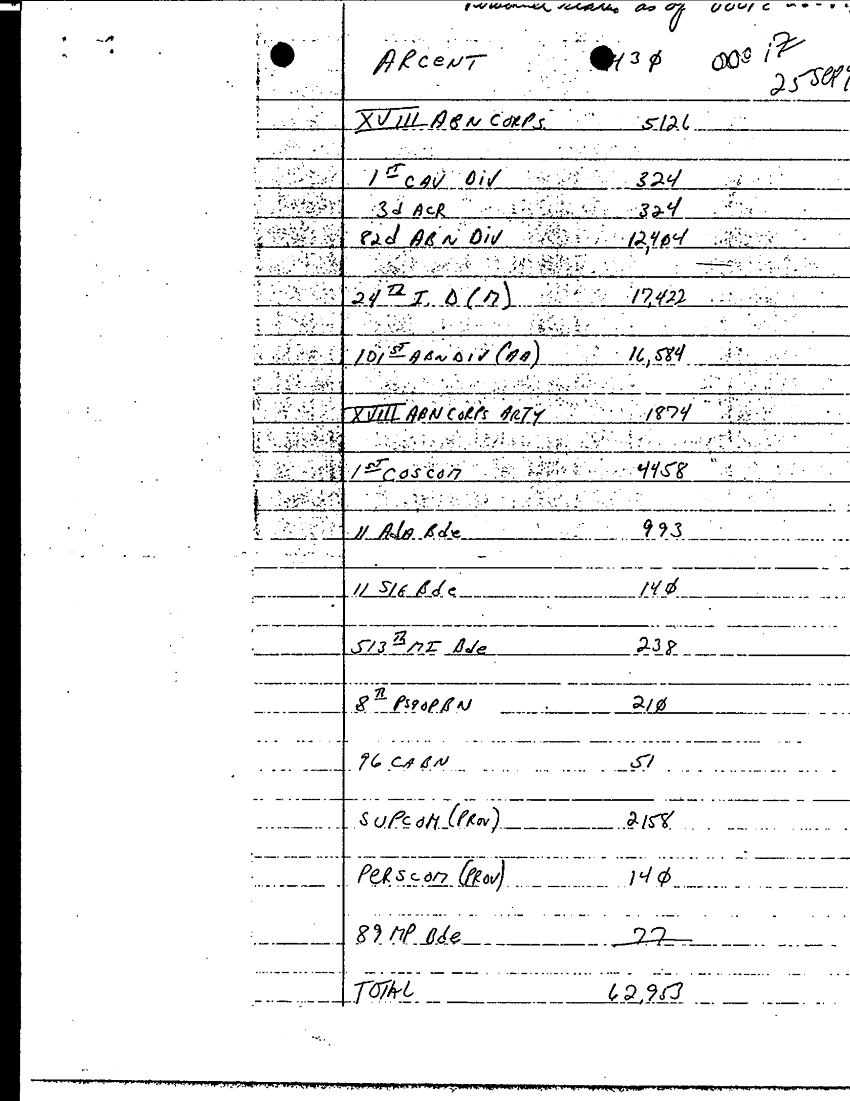 as of
ARCENT 430
25 SEP
XVIII ABN CORPS 5126
1ST CAV DIV 324
3d ACR 324
82d ABN DIV 12,404
24TH I.D (M) 17,422
101ST ABN DIV (AA) 16,584
XVIII ABN CORPS ARTY 1874
1ST COSCOM 4458
11 ADA Bde 993
11 SIG Bde 140
513th MI Bde 238
8TH PSYOP BN 210
96 CA BN 51
SUPCOM (PROV) 2158
PERSCOM (PROV) 140
89 MP Bde 77
TOTAL 62,953